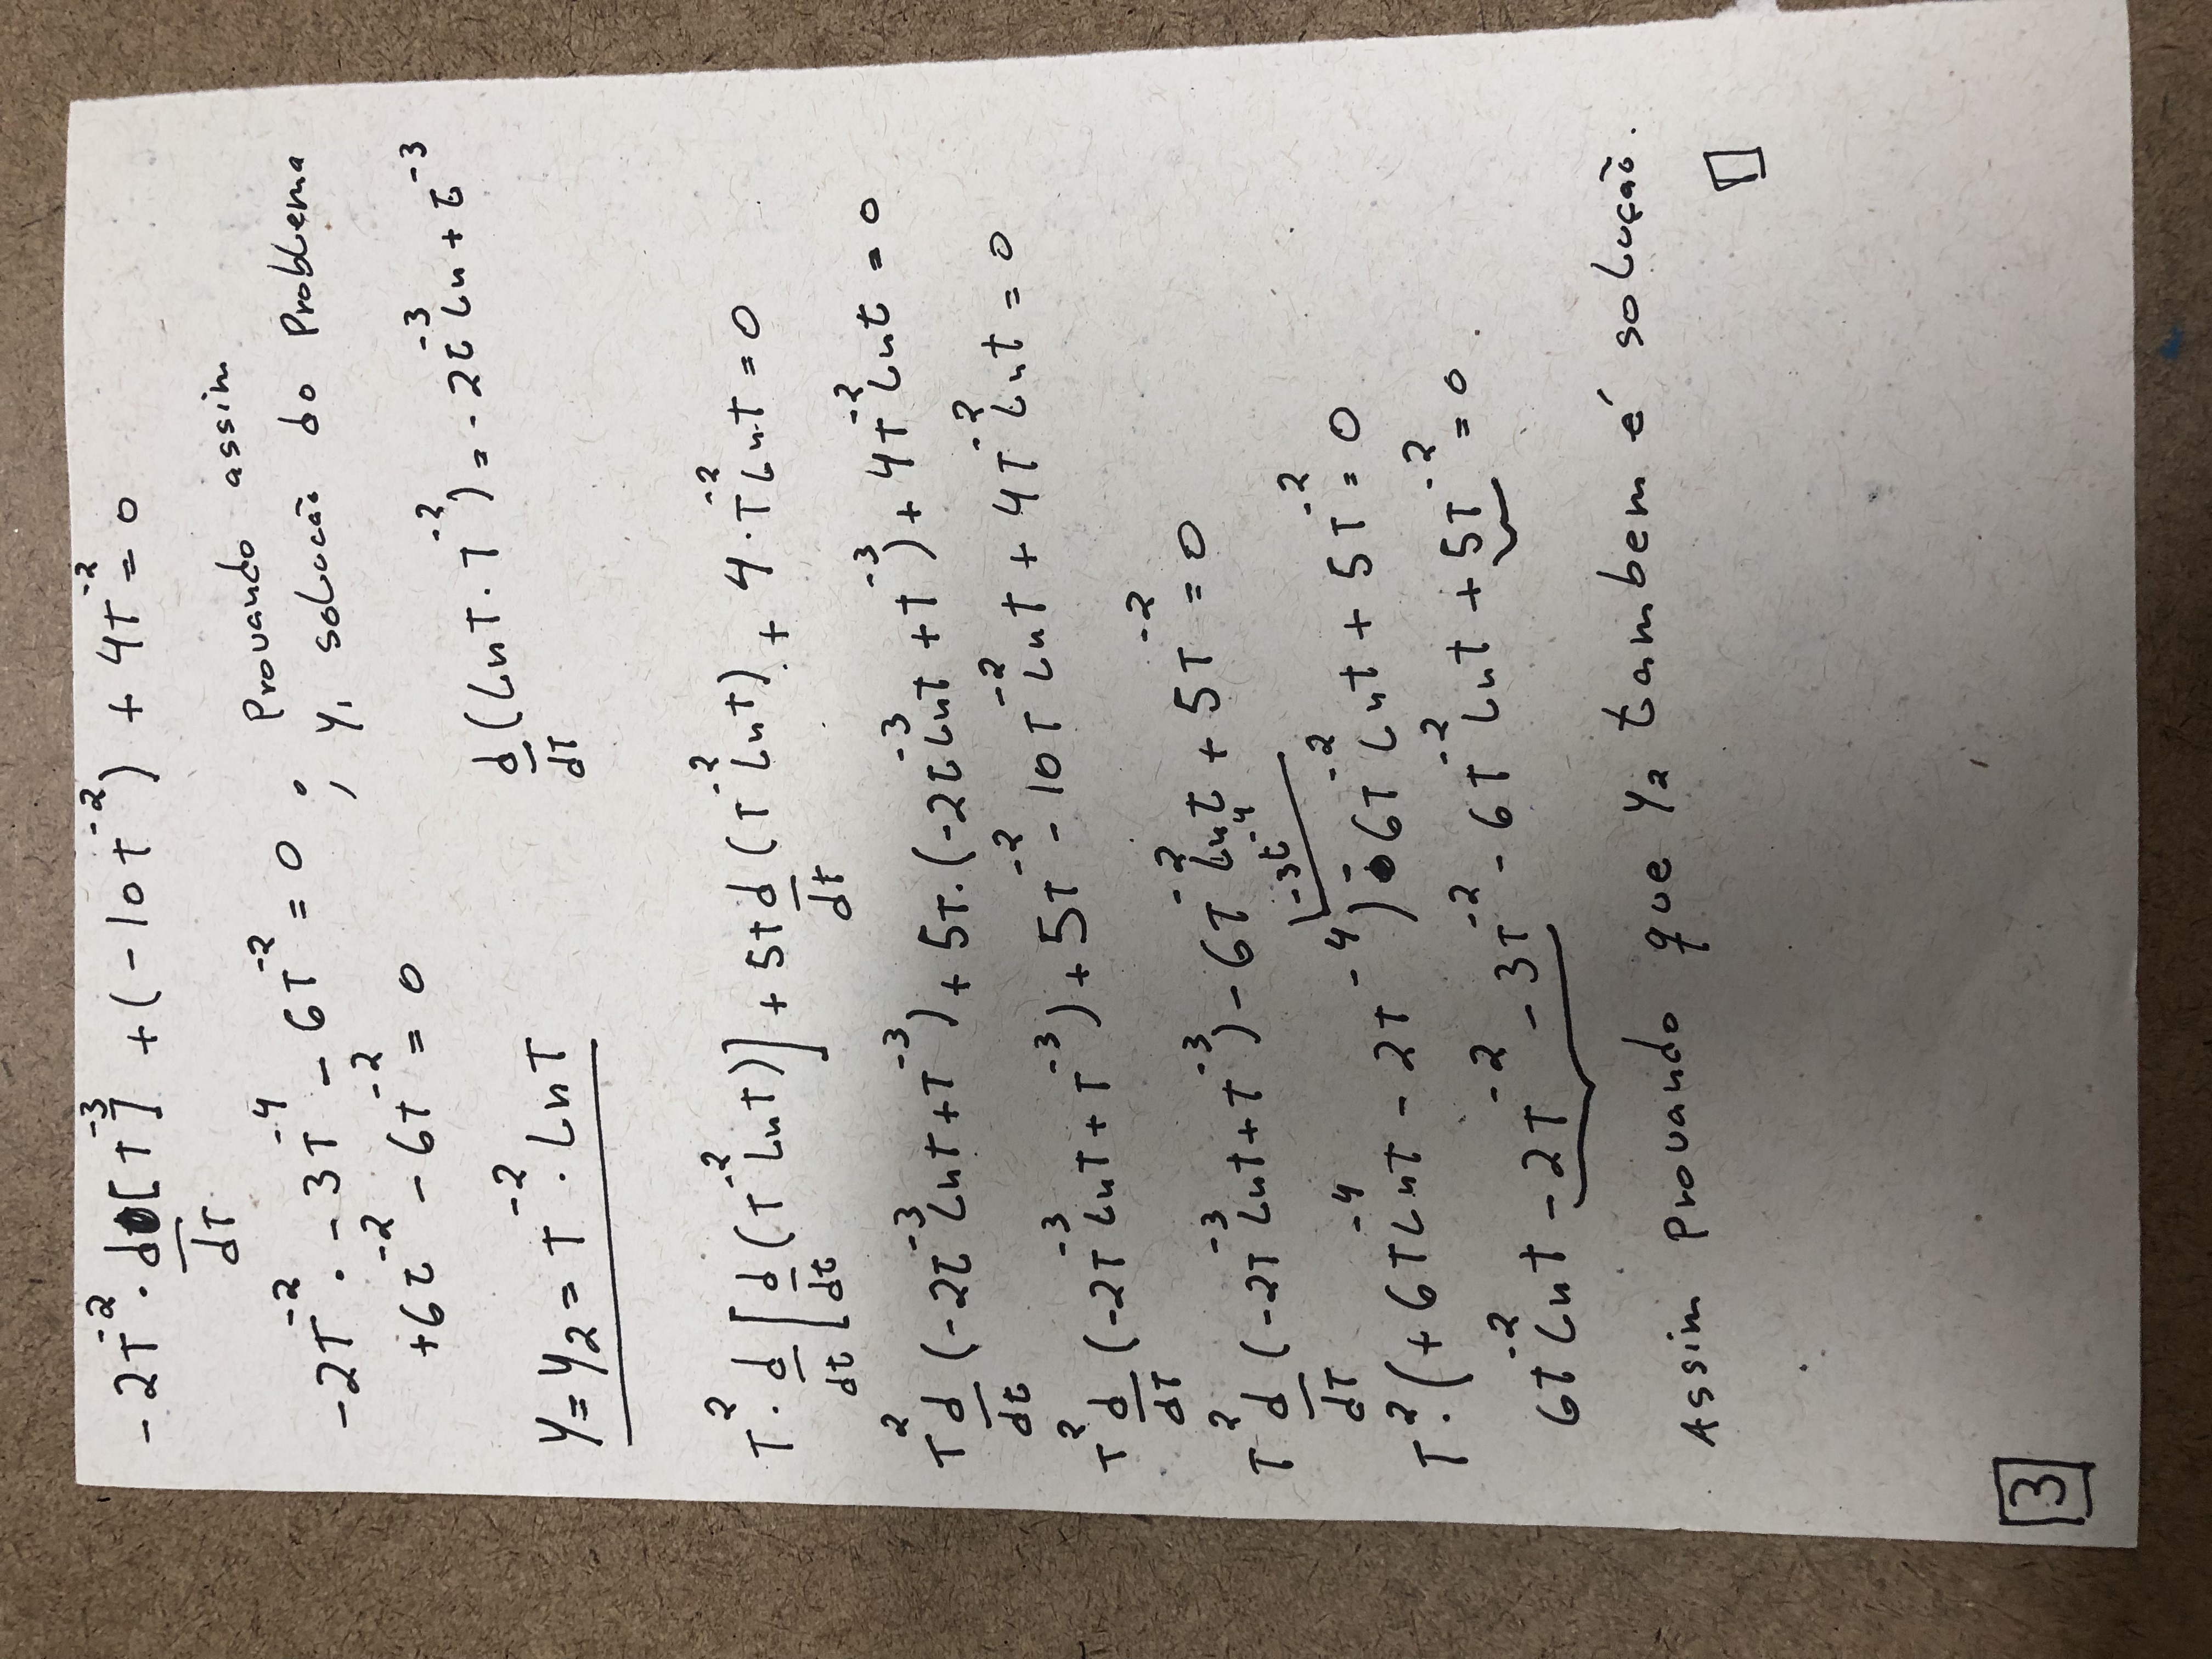 -2T⁻² · d/dT [T⁻³] + (-10T⁻²) + 4T⁻² = 0
-2T⁻² · -3T⁻⁴ - 6T⁻² = 0 ; Provando assim
y₁ solucão do Problema
+6t⁻² - 6T⁻² = 0
d/dT (LnT · T⁻²) = -2t⁻³Ln + t⁻³
Y = Y₂ = T⁻² · LnT
T² · d/dt [d/dt (T⁻² LnT)] + 5t d/dt (T⁻² Lnt) + 4 · T⁻² LnT = 0
T² d/dt (-2t⁻³ LnT + T⁻³) + 5T · (-2t⁻³ Lnt + T⁻³) + 4T⁻² Lnt = 0
T² d/dT (-2T⁻³ LnT + T⁻³) + 5T⁻² - 10T⁻² LnT + 4T⁻² Lnt = 0
T² d/dT (-2T⁻³ LnT + T⁻³) - 6T⁻² Lnt + 5T⁻² = 0
-3t⁻⁴
T² · (+6T⁻⁴ LnT - 2T⁻⁴) - 6T⁻² LnT + 5T⁻² = 0
6T⁻² LnT - 2T⁻² - 3T⁻² - 6T⁻² LnT + 5T⁻² = 0.
Assim Provando que Y₂ tambem é solução.
3